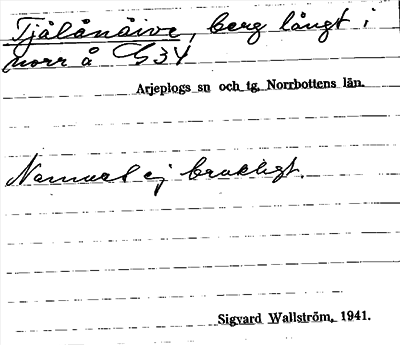 Tjålånåive, berg långt i
norr å G34
Arjeplogs sn och tg. Norrbottens län.
Namnet ej brukligt.
Sigvard Wallström, 1941.